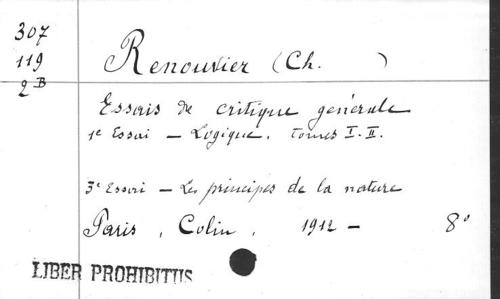 307
119
2 B
Renouvier (Ch. )
Essais de critique générale
1e Essai – Logique. tomes I. II.
3e Essai – Les principes de la nature
Paris, Colin, 1912 – 8°
LIBER PROHIBITUS